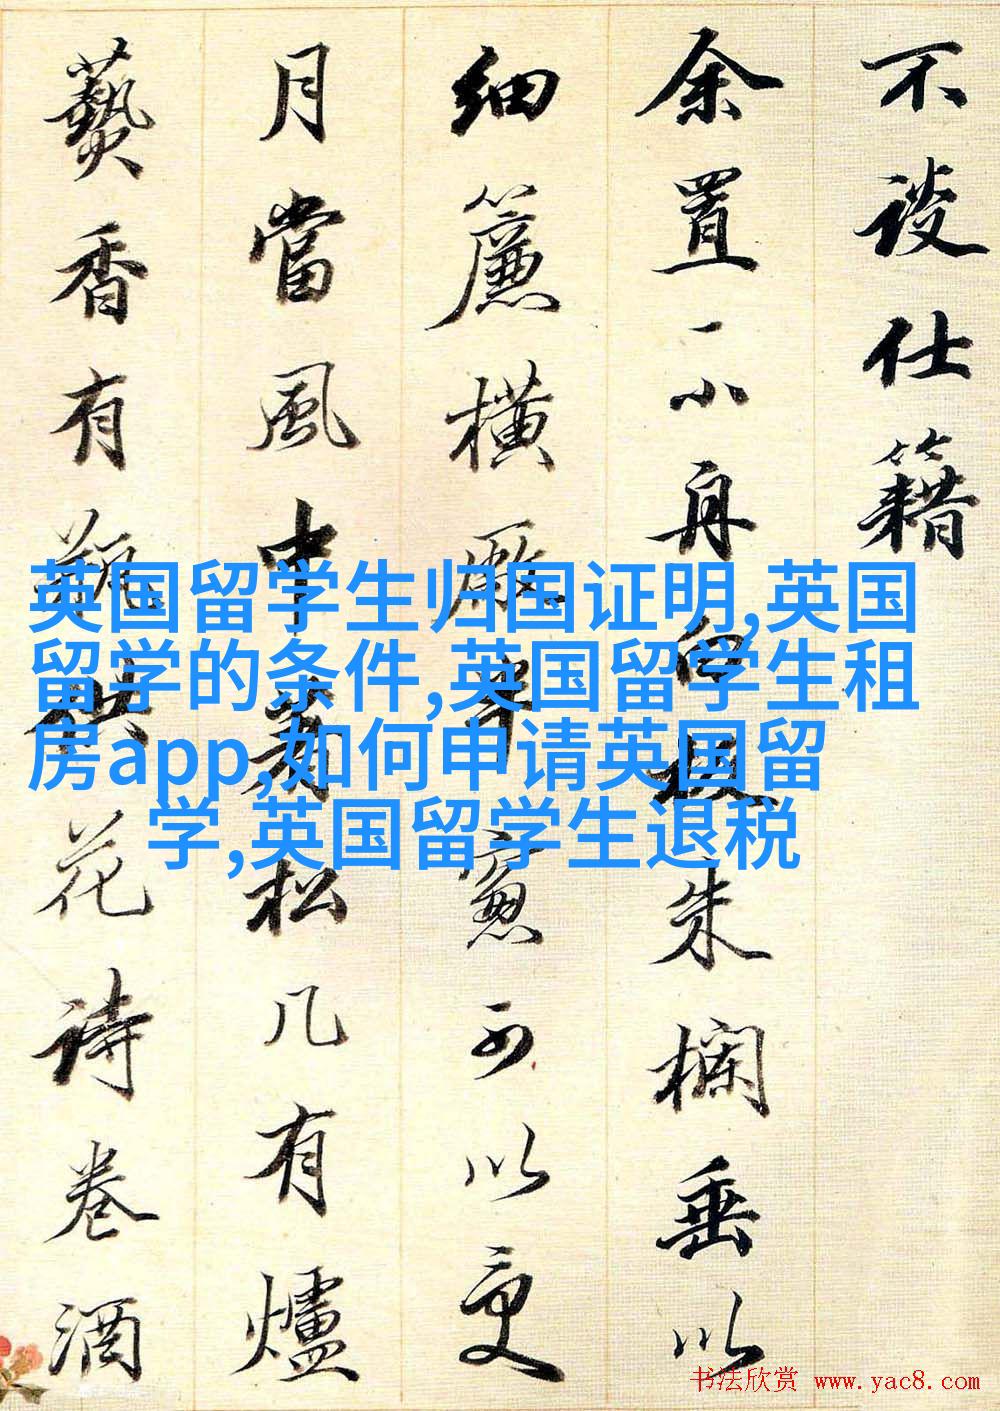 不談仕籍
余置一小舟白板朱欄垂以
細簾橫廠窻可以受
月當風中着松几有爐
爇香有瓶供花詩卷酒
英国留学生归国证明,英国
留学的条件,英国留学生租
房app,如何申请英国留
学,英国留学生退税
书法欣赏 www.yac8.com